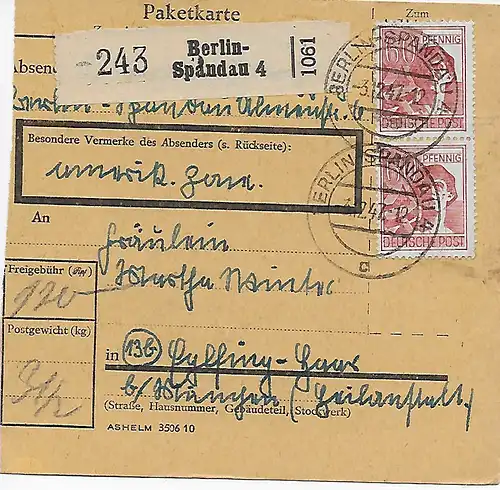 Paketkarte
Zum
243
Berlin-
Spandau 4
1061
Absend
Berlin-Spandau
Besondere Vermerke des Absenders (s. Rückseite):
amerik. Zone.
An
Fräulein
Martha Winter
Freigebühr (Rpf)
120
Postgewicht (kg)
in (13b) Eglfing-Haar
b/München (Heilanstalt)
(Straße, Hausnummer, Gebäudeteil, Stockwerk)
ASHELM 3506 10
60 PFENNIG
DEUTSCHE POST
60 PFENNIG
DEUTSCHE POST
BERLIN-SPANDAU 4
BERLIN-SPANDAU 4
d